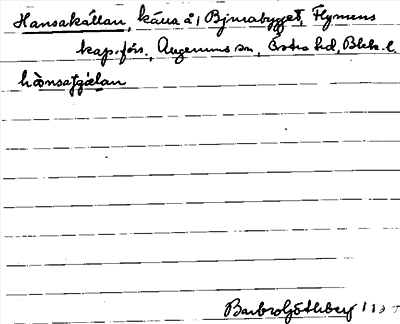 Hansakällan, källa i Bjurabygget, Flymens
kap.förs., Augerums sn, Östra hd, Blek. l.
hànsaɟgę̀lan
Barbro Göthberg